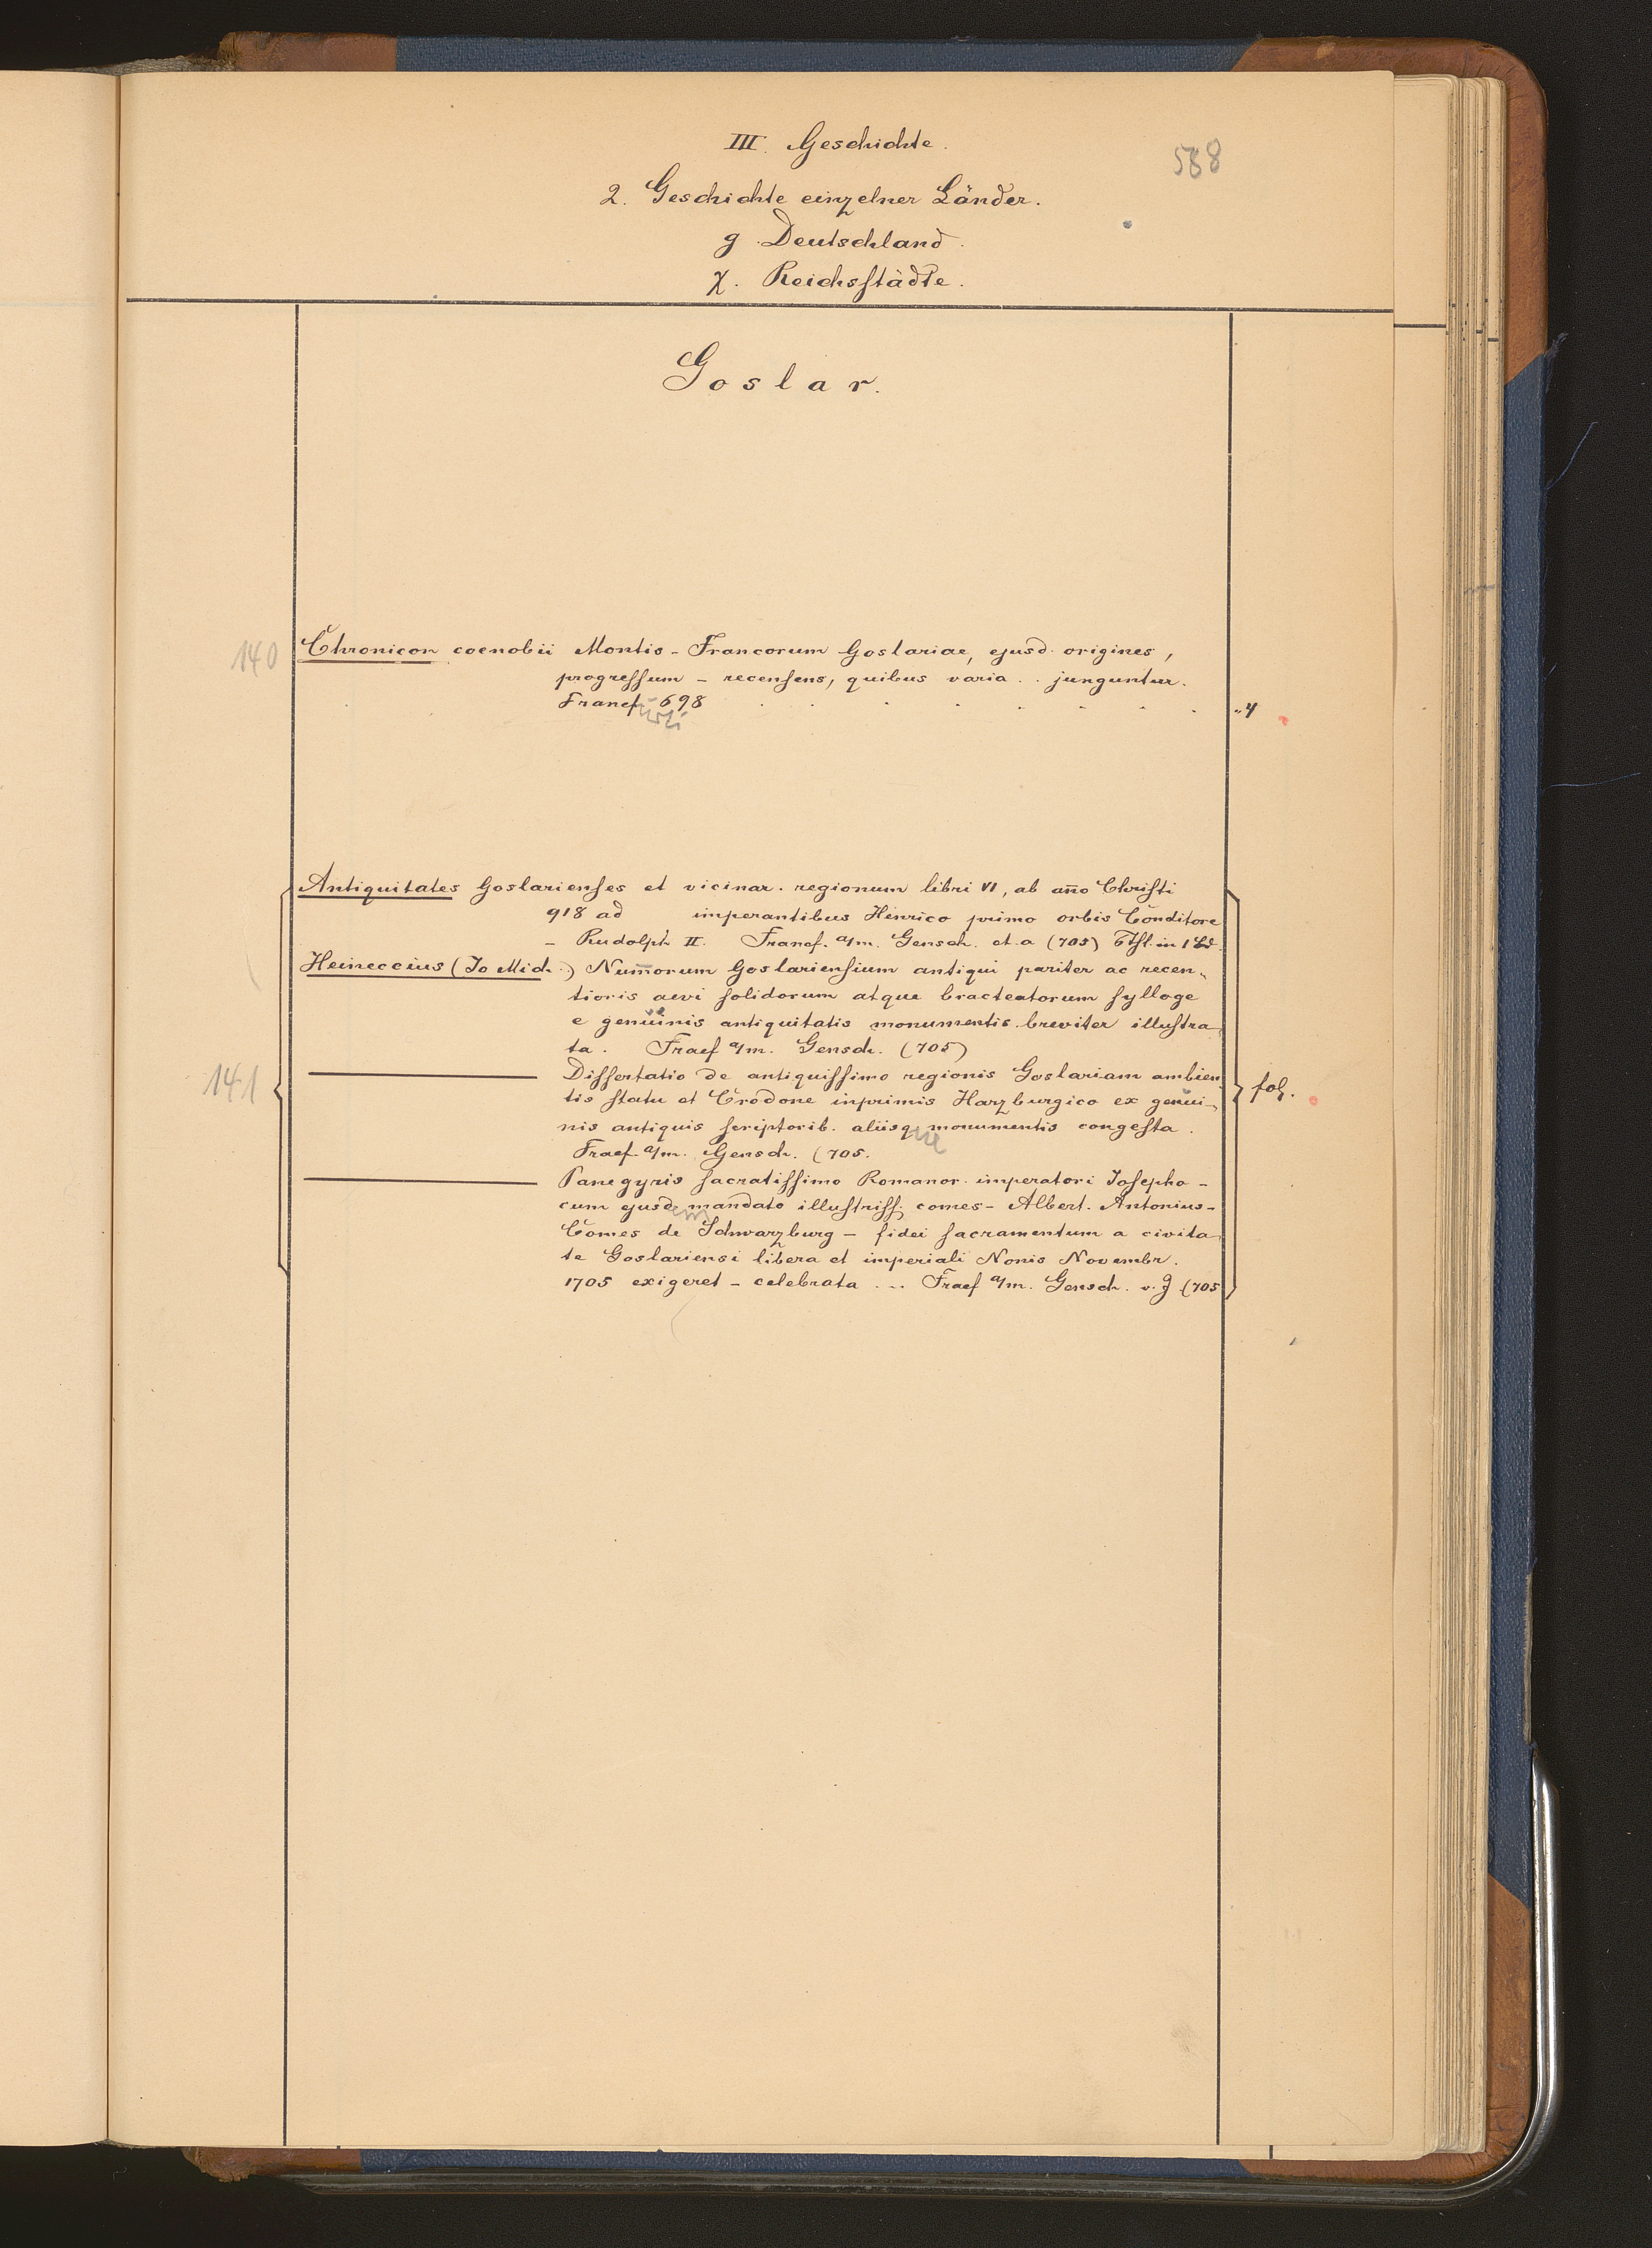 III. Geschichte.
588
2. Geschichte einzelner Länder.
g. Deutschland.
χ. Reichsstädte.
Goslar.
140
Chronicon coenobii Montis-Francorum Goslariae, ejusd. origines,
progressum – recensens, quibus varia . . junguntur.
Francf. 698 . . . . . . . . 4
furti
Antiquitates Goslarienses et vicinar. regionum libri VI, ab año Christi
918 ad imperantibus Henrico primo orbis Conditore
– Rudolph II. Francf. a/m. Gensch. et. a (705) 6 Thl. in 1 Bd.
Heineccius (Jo Mich.) Num̄orum Goslariensium antiqui pariter ac recen-
tioris aevi solidorum atque bracteatorum sylloge
e genuinis antiquitatis monumentis breviter illustra-
ta. Fraef a/m. Gensch. (705)
141
——— Dissertatio de antiquissimo regionis Goslariam ambien-
tis statu et Crodone inprimis Harzburgico ex genui-
nis antiquis scriptorib. aliisq. monumentis congesta.
ue
Fraef. a/m. Gensch. (705.
fol.
——— Panegyris sacratissimo Romanor. imperatori Josepho –
cum ejusd. mandato illustriss. comes – Albert. Antonius –
em
Comes de Schwarzburg – fidei sacramentum a civita-
te Goslariensi libera et imperiali Nonis Novembr.
1705 exigeret – celebrata ... Fraef a/m. Gensch. v. J. (705